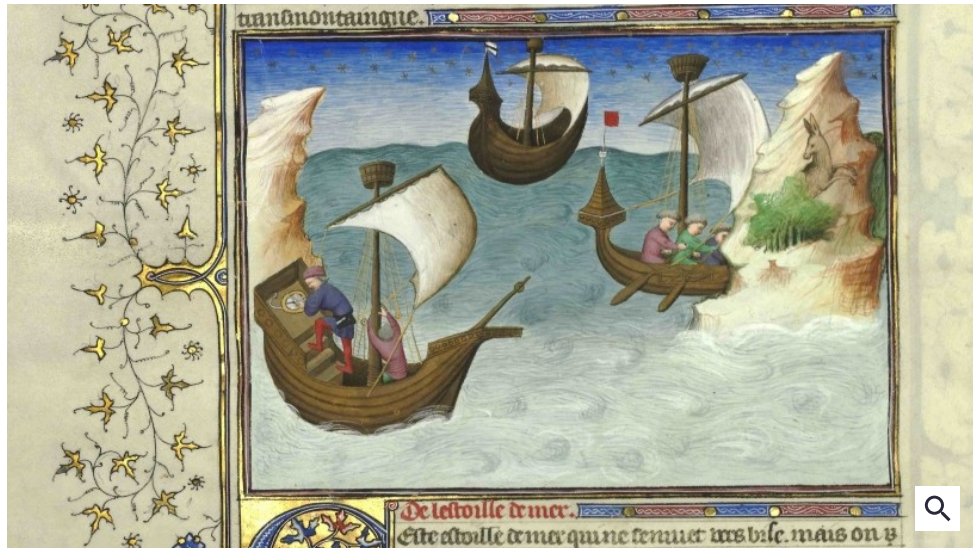 transmontaingne.
De lestoille de mer.
Ceste estoille de mer qui ne se muet vers bise. mais on